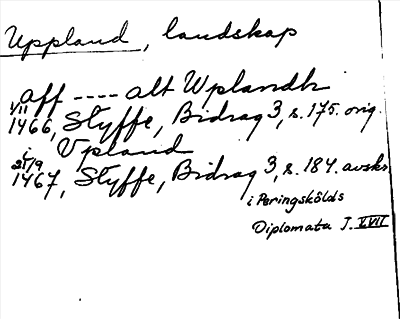 Uppland, landskap
aff ---- alt Wplandh
1/11 1466, Styffe, Bidrag 3, s. 175. orig.
i Vpland
25/9 1467, Styffe, Bidrag 3, s. 184. avskr
i Peringskölds
Diplomata T. XVII